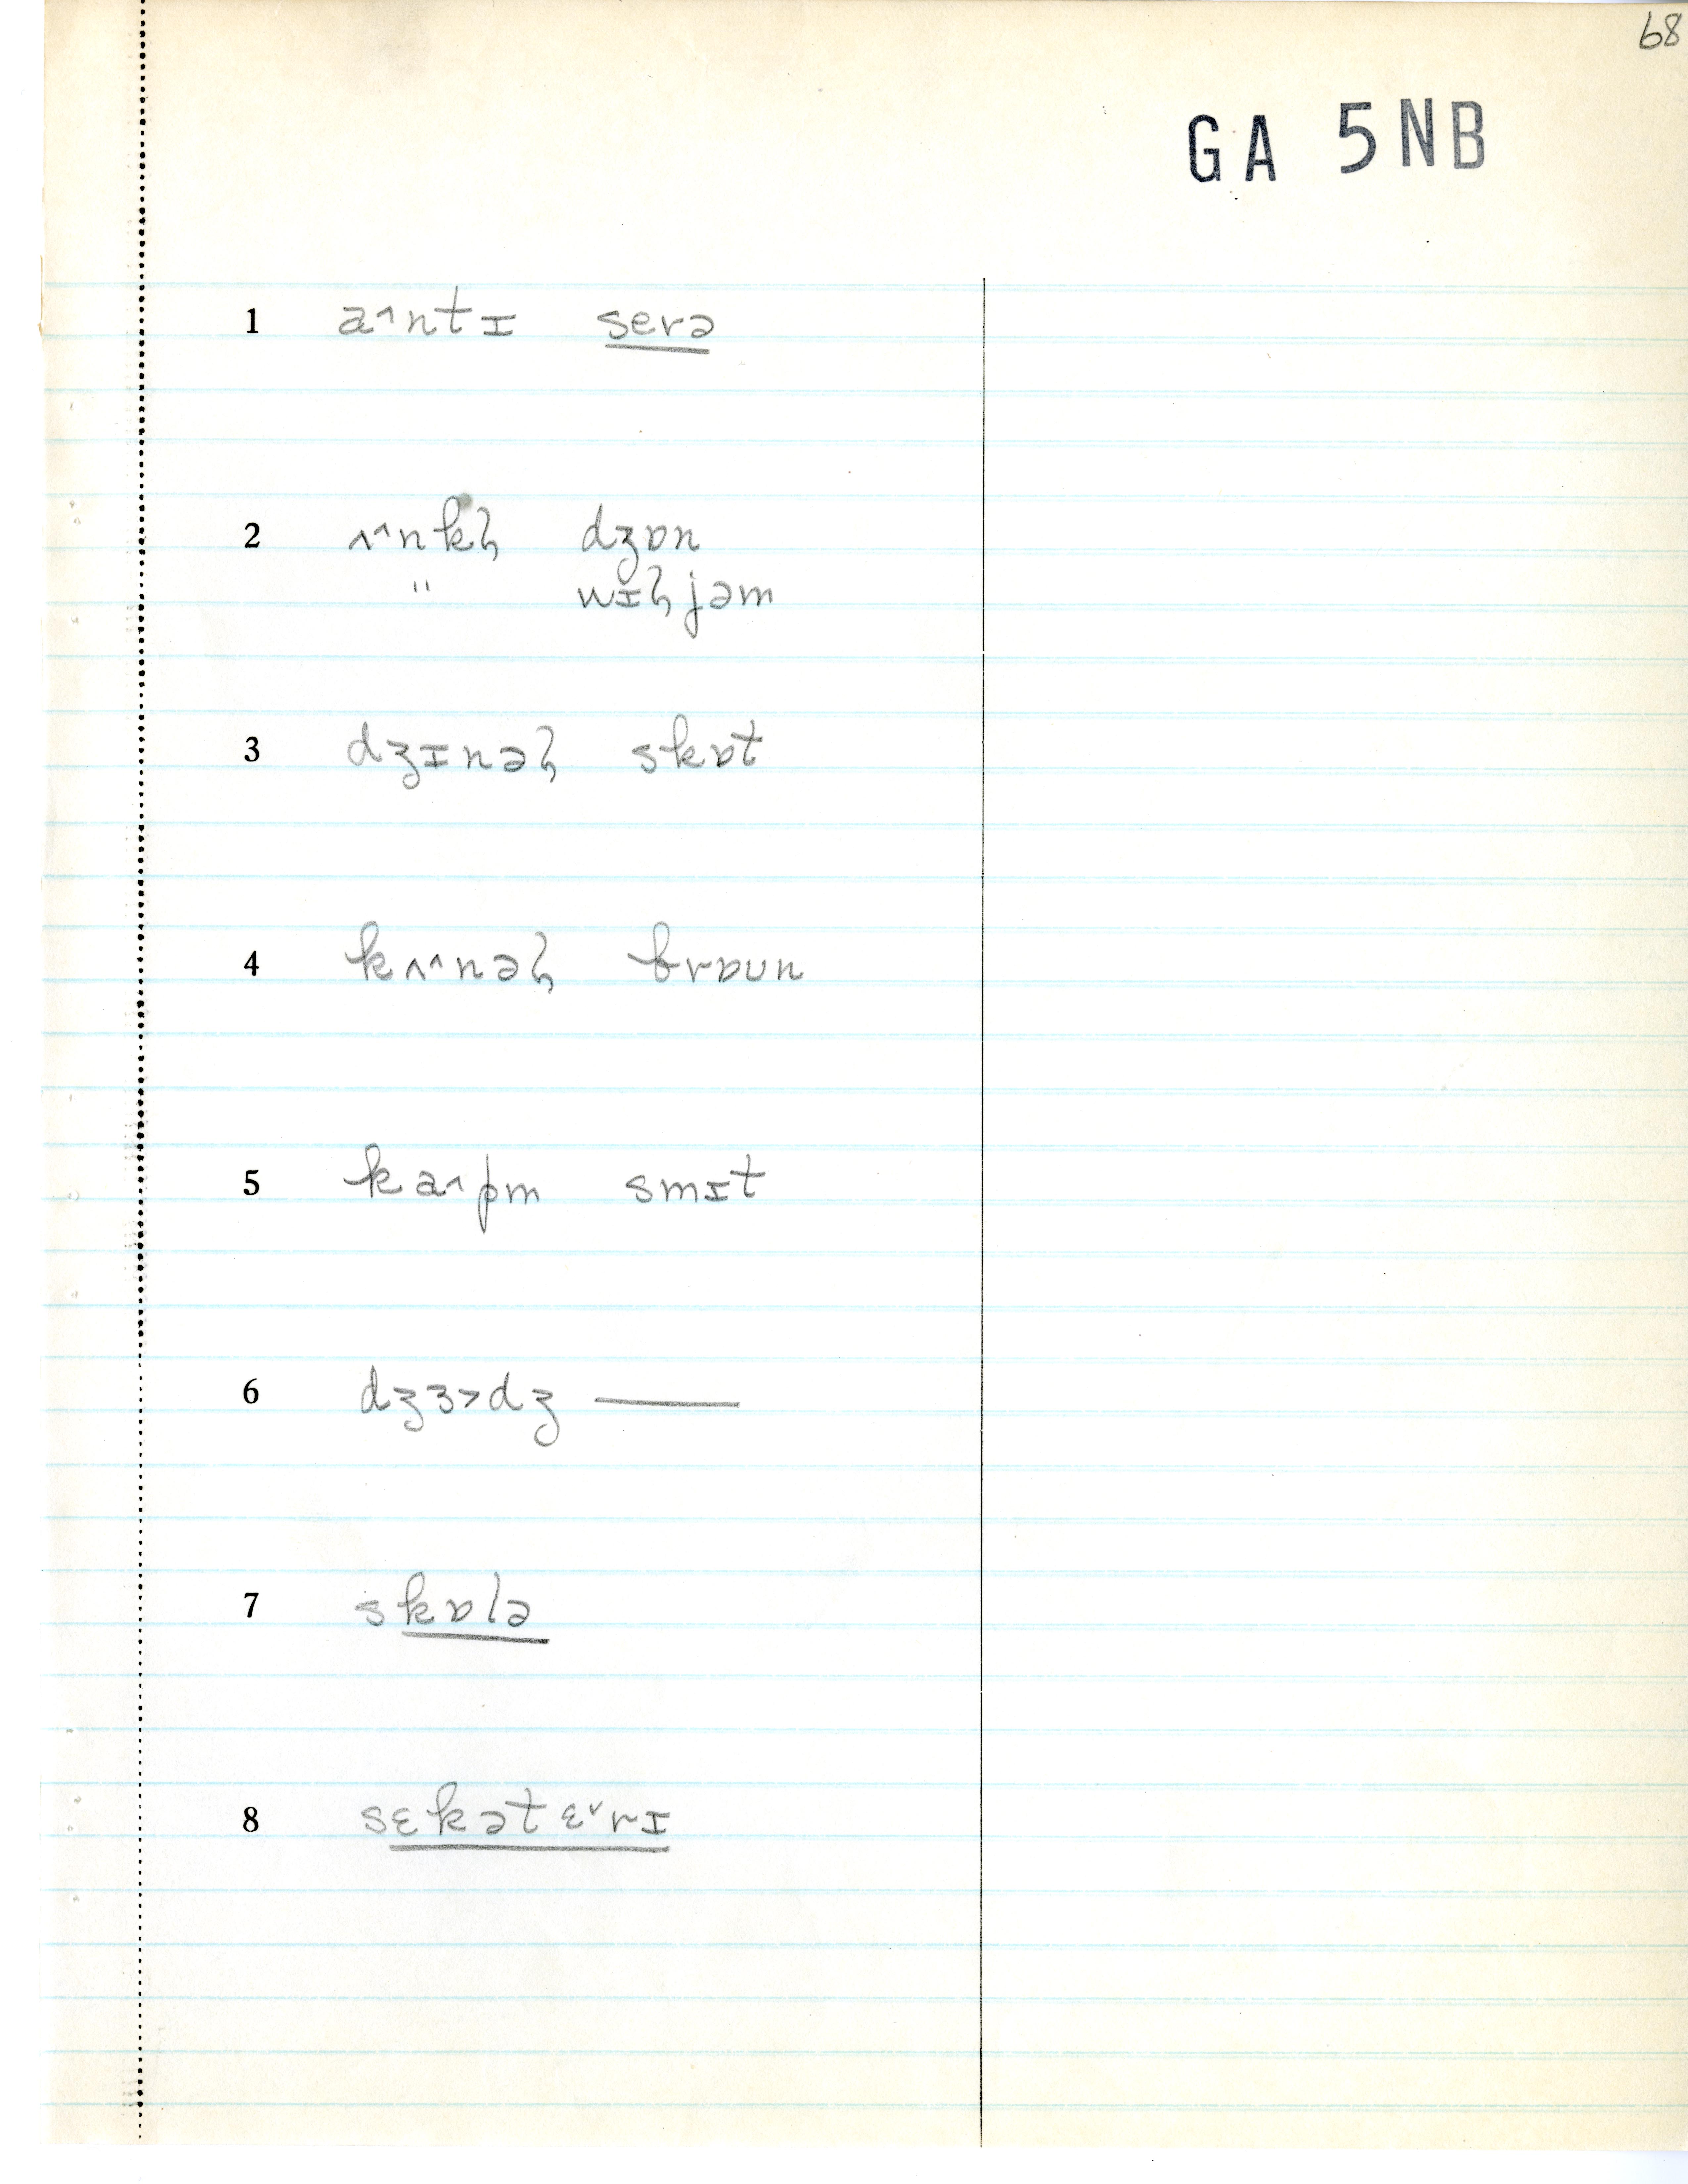 68
GA 5NB
1 a˄ntɪ serə
2 ʌ˄nkɫ dʒɒn
" wɪɫjəm
3 dʒɪnəɫ skɒt
4 kʌ˄nəɫ brɒun
5 ka˄pm smɪt
6 dʒɜ˃dʒ ——
7 skɒlə
8 sɛkətɛ˅rɪ